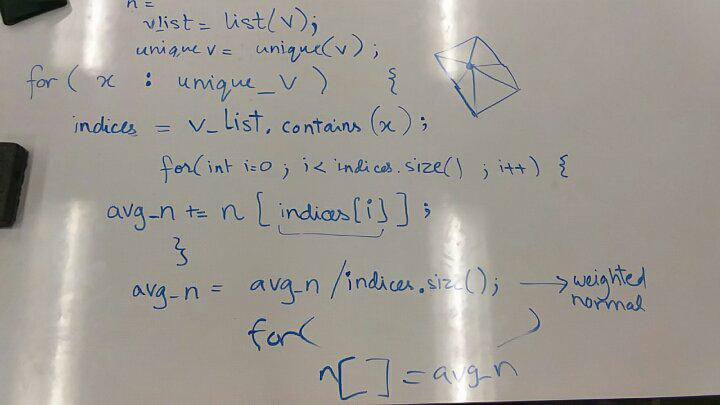 n =
v_list = list(v);
unique v = unique(v);
for( x : unique_v ) {
indices = v_list.contains(x);
for(int i=0 ; i< indices.size() ; i++) {
avg_n += n [indices[i]];
}
avg_n = avg_n /indices.size(); → weighted normal
for( )
n[ ] = avg_n